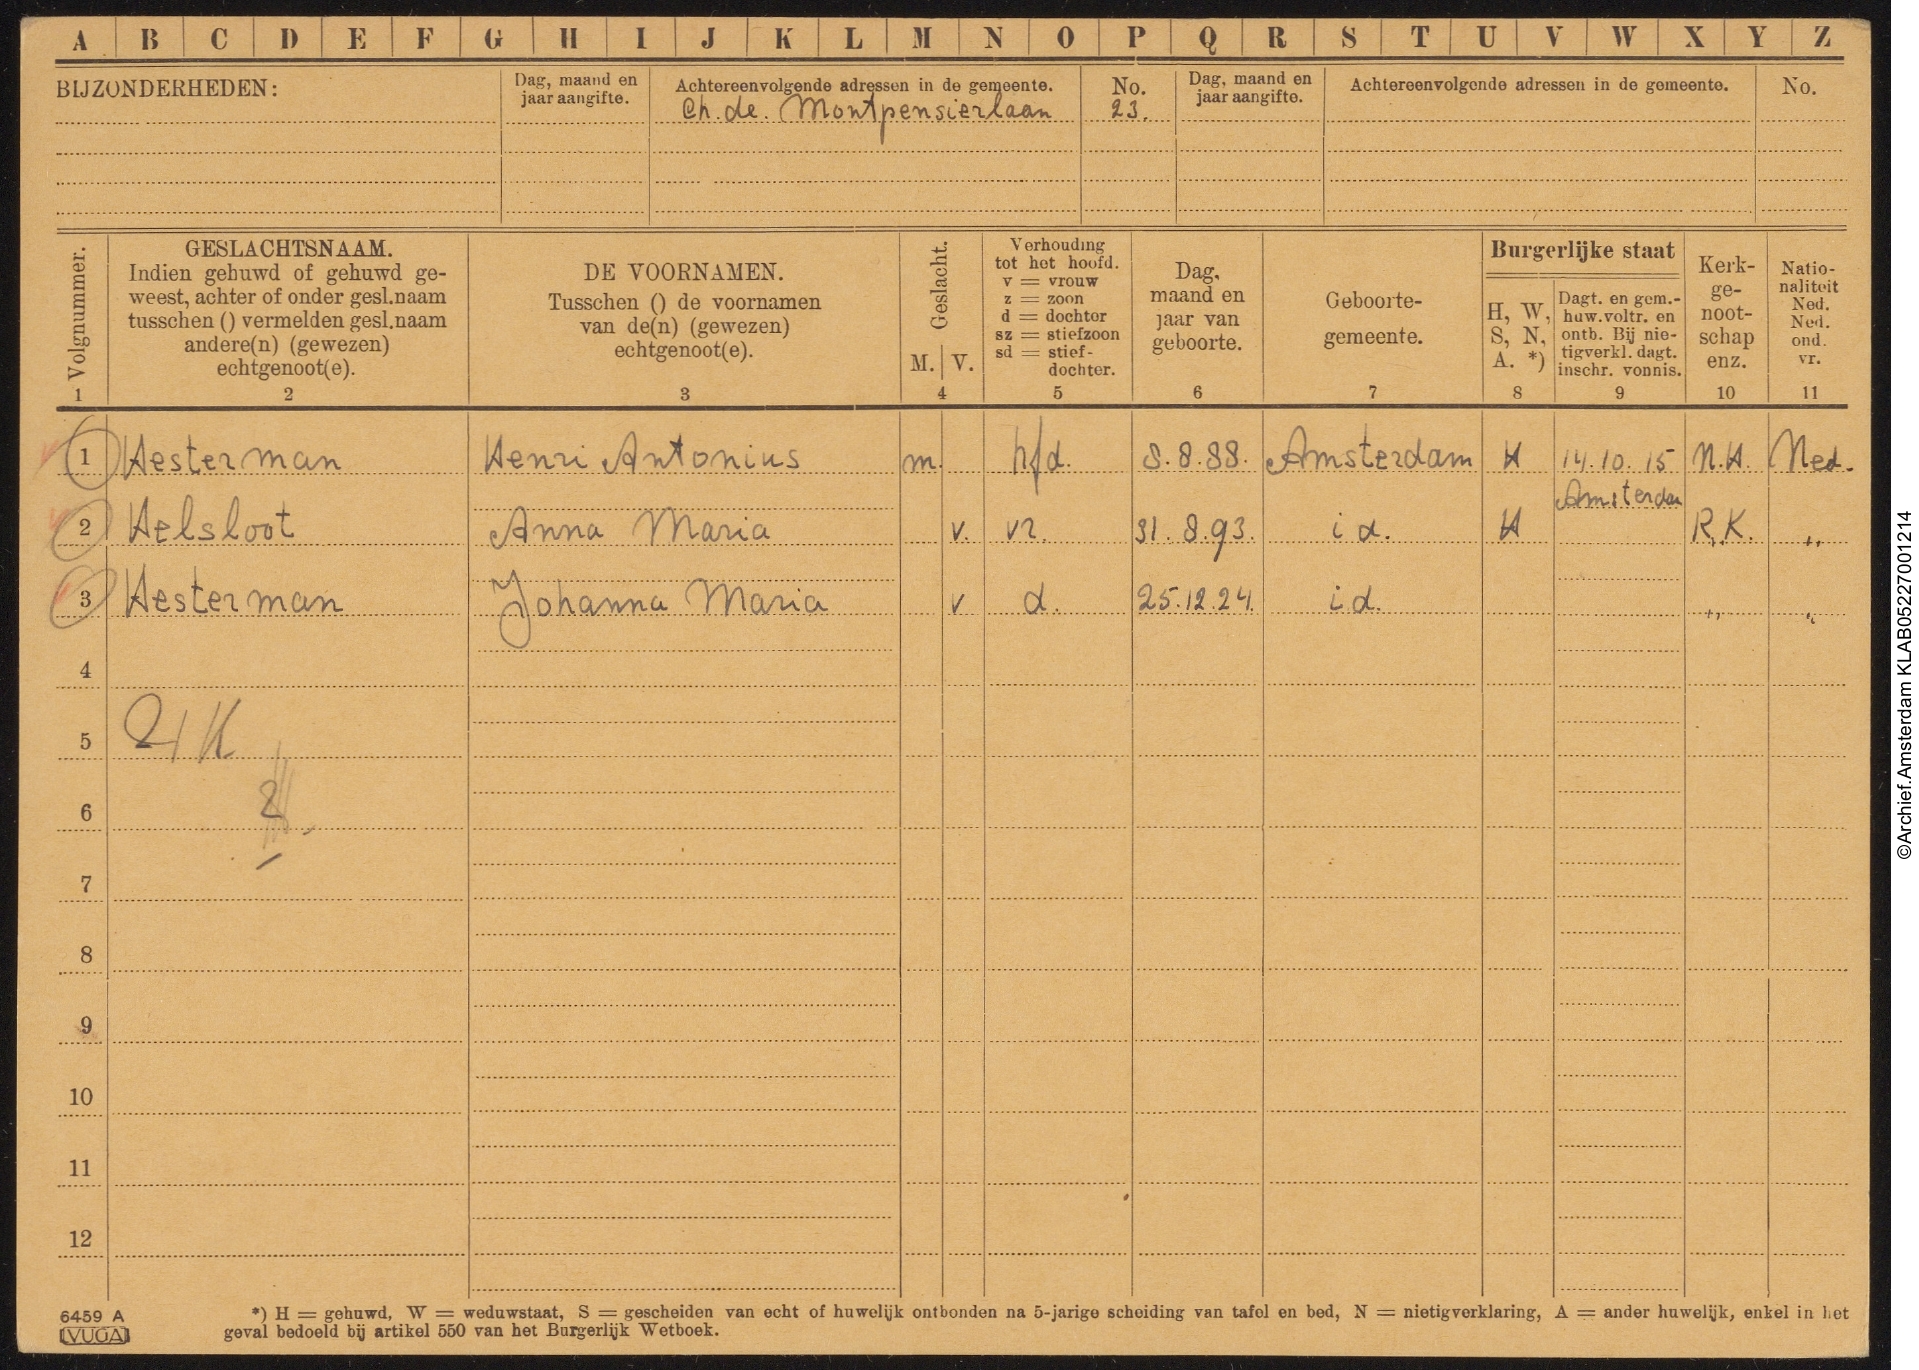 A B C D E F G H I J K L M N O P Q R S T U V W X Y Z
BIJZONDERHEDEN:
Dag, maand en
jaar aangifte.
Achtereenvolgende adressen in de gemeente.
No.
Dag, maand en
jaar aangifte.
Achtereenvolgende adressen in de gemeente.
No.
Ch. de. Montpensierlaan 23.
Volgnummer.
1
GESLACHTSNAAM.
Indien gehuwd of gehuwd ge-
weest, achter of onder gesl.naam
tusschen () vermelden gesl.naam
andere(n) (gewezen)
echtgenoot(e).
2
DE VOORNAMEN.
Tusschen () de voornamen
van de(n) (gewezen)
echtgenoot(e).
3
Geslacht.
M. V.
4
Verhouding
tot het hoofd.
v = vrouw
z = zoon
d = dochter
sz = stiefzoon
sd = stief-
dochter.
5
Dag,
maand en
jaar van
geboorte.
6
Geboorte-
gemeente.
7
Burgerlijke staat
H, W,
S, N,
A. *)
8
Dagt. en gem.-
huw.voltr. en
ontb. Bij nie-
tigverkl. dagt.
inschr. vonnis.
9
Kerk-
ge-
noot-
schap
enz.
10
Natio-
naliteit
Ned.
Ned.
ond.
vr.
11
1 Hesterman Henri Antonius m. hfd. 8.8.88. Amsterdam H 14.10.15 N.H. Ned.
Amsterdam
2 Helsloot Anna Maria v. vr. 31.8.93. id. H R.K. „
3 Hesterman Johanna Maria v d. 25.12.24. id. „ „
4
5
6 2
7
8
9
10
11
12
6459 A
VUGA
*) H = gehuwd, W = weduwstaat, S = gescheiden van echt of huwelijk ontbonden na 5-jarige scheiding van tafel en bed, N = nietigverklaring, A = ander huwelijk, enkel in het
geval bedoeld bij artikel 550 van het Burgerlijk Wetboek.
©Archief.Amsterdam KLAB05227001214